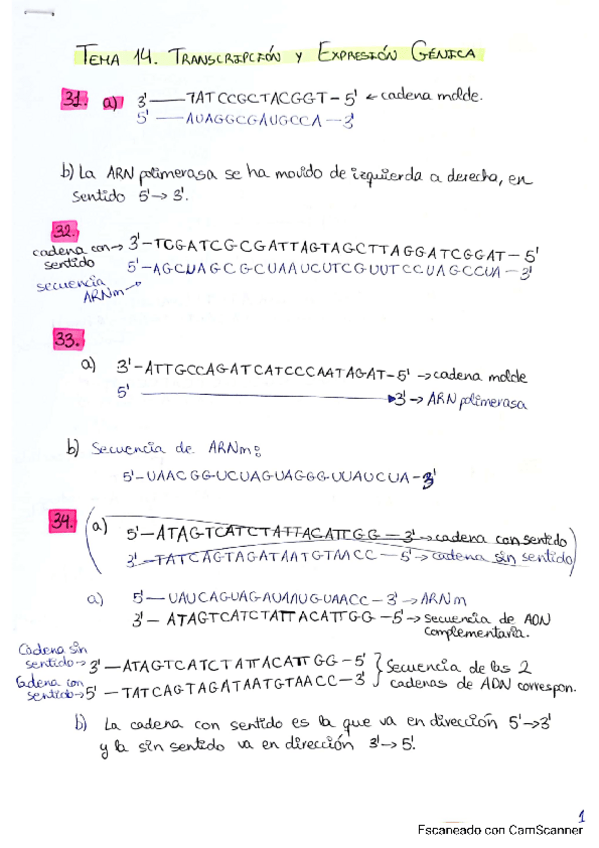 TEMA 14. TRANSCRIPCIÓN Y EXPRESIÓN GÉNICA
31. a) 3'——TATCCGCTACGGT-5' ← cadena molde.
5' ——AUAGGCGAUGCCA—3'
b) La ARN polimerasa se ha movido de izquierda a derecha, en
sentido 5'→3'.
32.
cadena con → 3'-TCGATCGCGATTAGTAGCTTAGGATCGGAT-5'
sentido
5'-AGCUAGCGCUAAUCUTCGUUTCCUAGCCUA-3'
secuencia
ARNm
33.
a) 3'-ATTGCCAGATCATCCCAATAGAT-5' → cadena molde
5' 3' → ARN polimerasa
b) Secuencia de ARNm:
5'-UAACGGUCUAGUAGGGUUAUCUA-3'
34. (a) 5'-ATAGTCATCTATTACATTGG-3' → cadena con sentido
3'-TATCAGTAGATAATGTAACC-5' → cadena sin sentido)
a) 5'—UAUCAGUAGAUAAUGUAACC-3' → ARNm
3'- ATAGTCATCTATTACATTGG-5' → secuencia de ADN
complementaria.
Cadena sin
sentido → 3'—ATAGTCATCTATTACATTGG-5' } Secuencia de las 2
Cadena con
sentido → 5'-TATCAGTAGATAATGTAACC-3' cadenas de ADN correspon.
b) La cadena con sentido es la que va en dirección 5'→3'
y la sin sentido va en dirección 3'→5'.
1
Escaneado con CamScanner